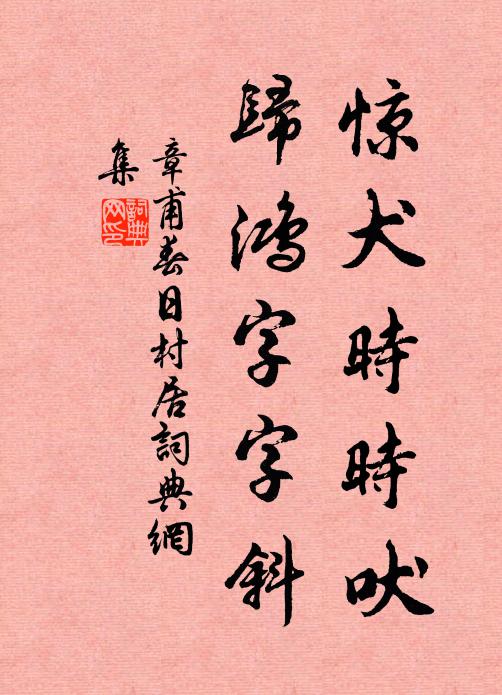 惊犬時時吠
歸鴻字字斜
章甫春日村居詞典網
集
詞典
网印